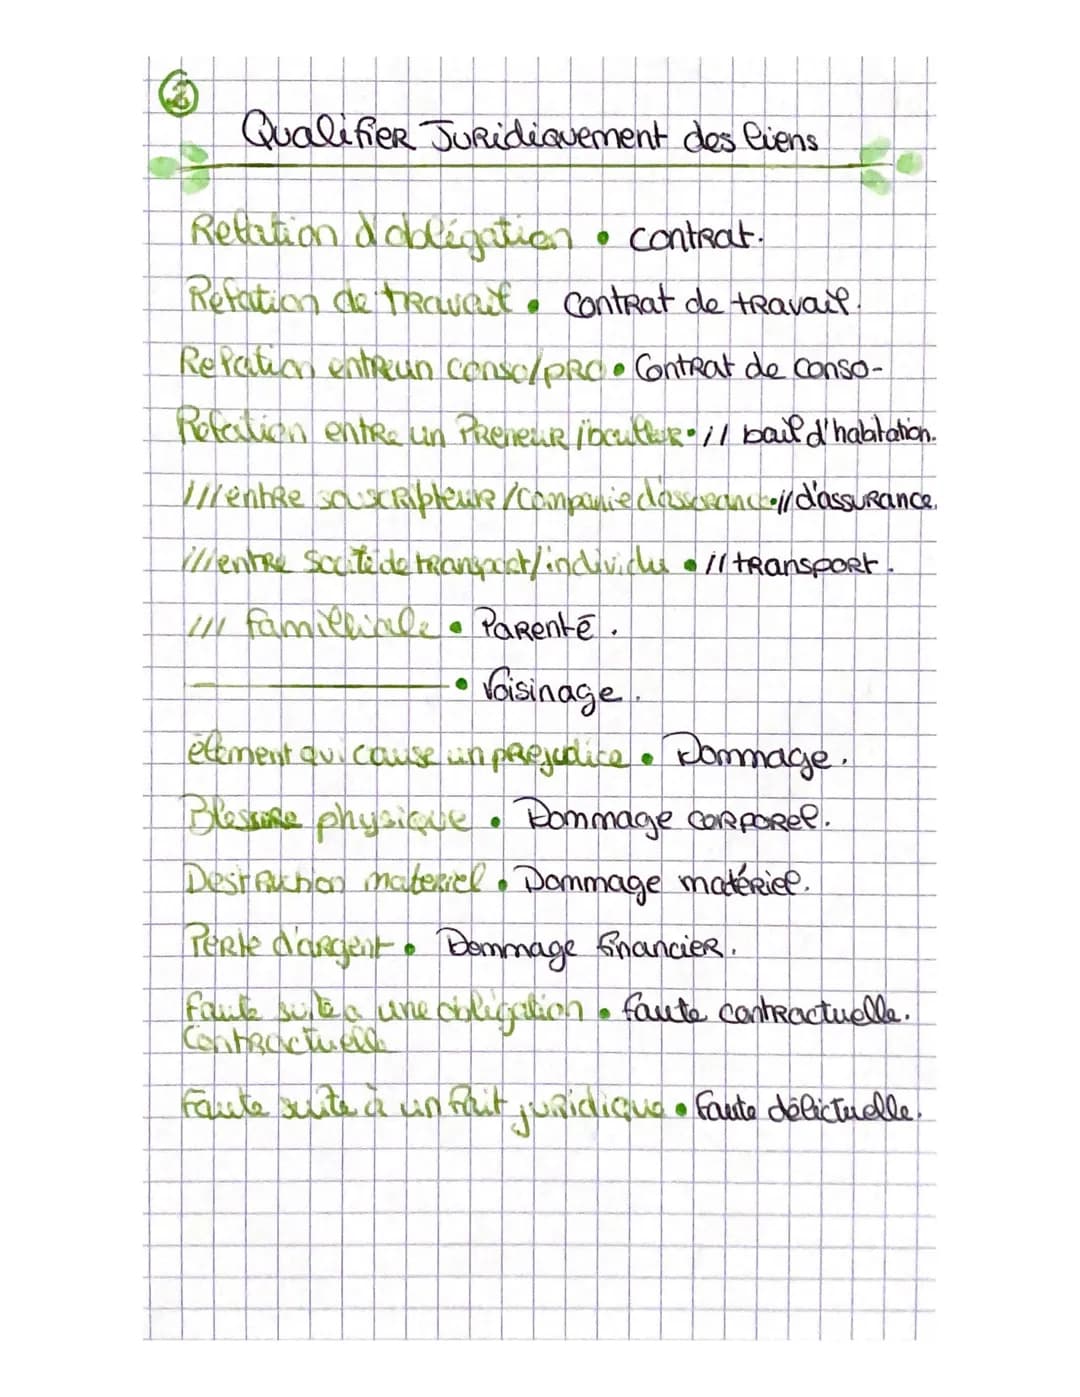 Qualifier Juridiquement des liens
Relation d'obligation • contrat.
Relation de travail • contrat de travail.
Relation entre un conso/pro • Contrat de conso-
Relation entre un Preneur / • // bail d'habitation.
/// entre souscripteur / Companie d'assurance • // d'assurance.
/// entre Socité de transport / individu • // transport.
/// familliale • Parenté.
• Voisinage.
élement qui cause un prejudice • Dommage.
Blessure physique • Dommage corporel.
Destruction materiel • Dommage matériel.
Perte d'argent • Dommage financier.
Faute suite a une obligation • faute contractuelle.
Contractuelle
Faute suite à un fait juridique • Faute délictuelle.